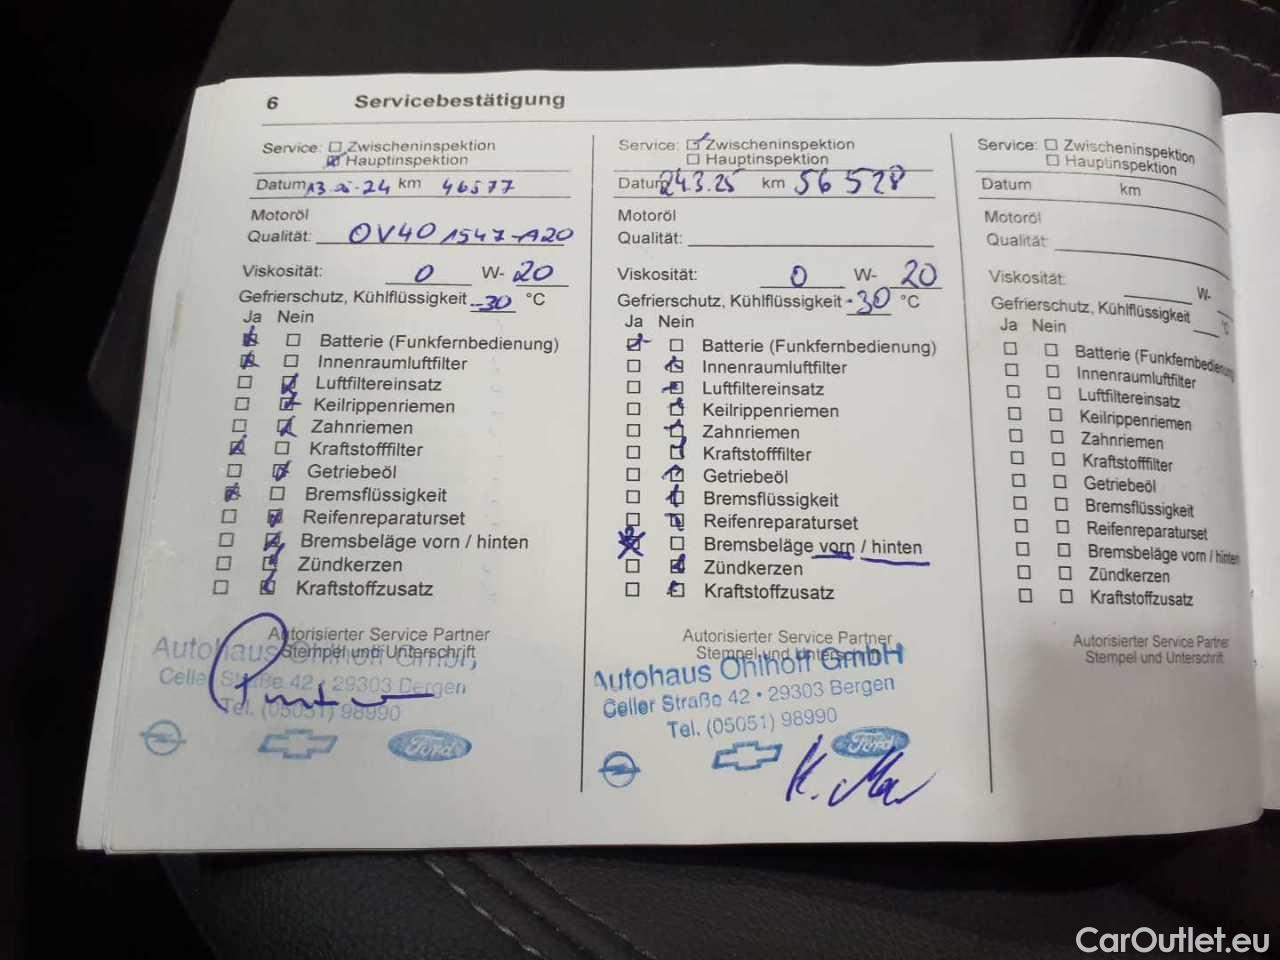 6 Servicebestätigung
Service: Zwischeninspektion
Hauptinspektion
Datum 24 km 46577
Motoröl
Qualität: OV40 1547-A20
Viskosität: 0 W- 20
Gefrierschutz, Kühlflüssigkeit -30 °C
Ja Nein
Batterie (Funkfernbedienung)
Innenraumluftfilter
Luftfiltereinsatz
Keilrippenriemen
Zahnriemen
Kraftstofffilter
Getriebeöl
Bremsflüssigkeit
Reifenreparaturset
Bremsbeläge vorn / hinten
Zündkerzen
Kraftstoffzusatz
Autorisierter Service Partner
Stempel und Unterschrift
Autohaus Ohlhoff GmbH
Celler Straße 42 • 29303 Bergen
Tel. (05051) 98990
Ford
Service: Zwischeninspektion
Hauptinspektion
Datum 24.3.25 km 56528
Motoröl
Qualität:
Viskosität: 0 W- 20
Gefrierschutz, Kühlflüssigkeit -30 °C
Ja Nein
Batterie (Funkfernbedienung)
Innenraumluftfilter
Luftfiltereinsatz
Keilrippenriemen
Zahnriemen
Kraftstofffilter
Getriebeöl
Bremsflüssigkeit
Reifenreparaturset
Bremsbeläge vorn / hinten
Zündkerzen
Kraftstoffzusatz
Autorisierter Service Partner
Stempel und Unterschrift
Autohaus Ohlhoff GmbH
Celler Straße 42 • 29303 Bergen
Tel. (05051) 98990
Ford
Service: Zwischeninspektion
Hauptinspektion
Datum km
Motoröl
Qualität:
Viskosität: W-
Gefrierschutz, Kühlflüssigkeit °C
Ja Nein
Batterie (Funkfernbedienung
Innenraumluftfilter
Luftfiltereinsatz
Keilrippenriemen
Zahnriemen
Kraftstofffilter
Getriebeöl
Bremsflüssigkeit
Reifenreparaturset
Bremsbeläge vorn / hinten
Zündkerzen
Kraftstoffzusatz
Autorisierter Service Partner
Stempel und Unterschrift
CarOutlet.eu